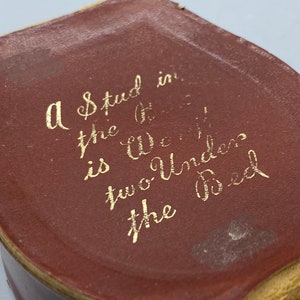 A Stud in
the
is Wor
two Under
the Bed